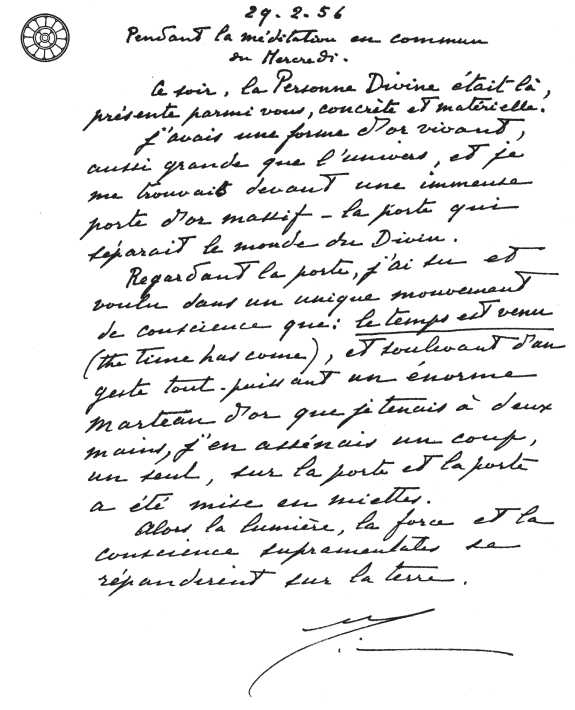 29-2-56
Pendant la méditation en commun
du Mercredi.
Ce soir, la Personne Divine était là,
présente parmi vous, concrète et matérielle.
J'avais une forme d'or vivant,
aussi grande que l'univers, et je
me trouvais devant une immense
porte d'or massif - la porte qui
séparait le monde du Divin.
Regardant la porte, j'ai su et
voulu dans un unique mouvement
de conscience que: le temps est venu
(the time has come), et soulevant d'un
geste tout-puissant un énorme
marteau d'or que je tenais à deux
mains, j'en assénais un coup,
un seul, sur la porte et la porte
a été mise en miettes.
Alors la lumière, la force et la
conscience supramentales se
répandirent sur la terre.